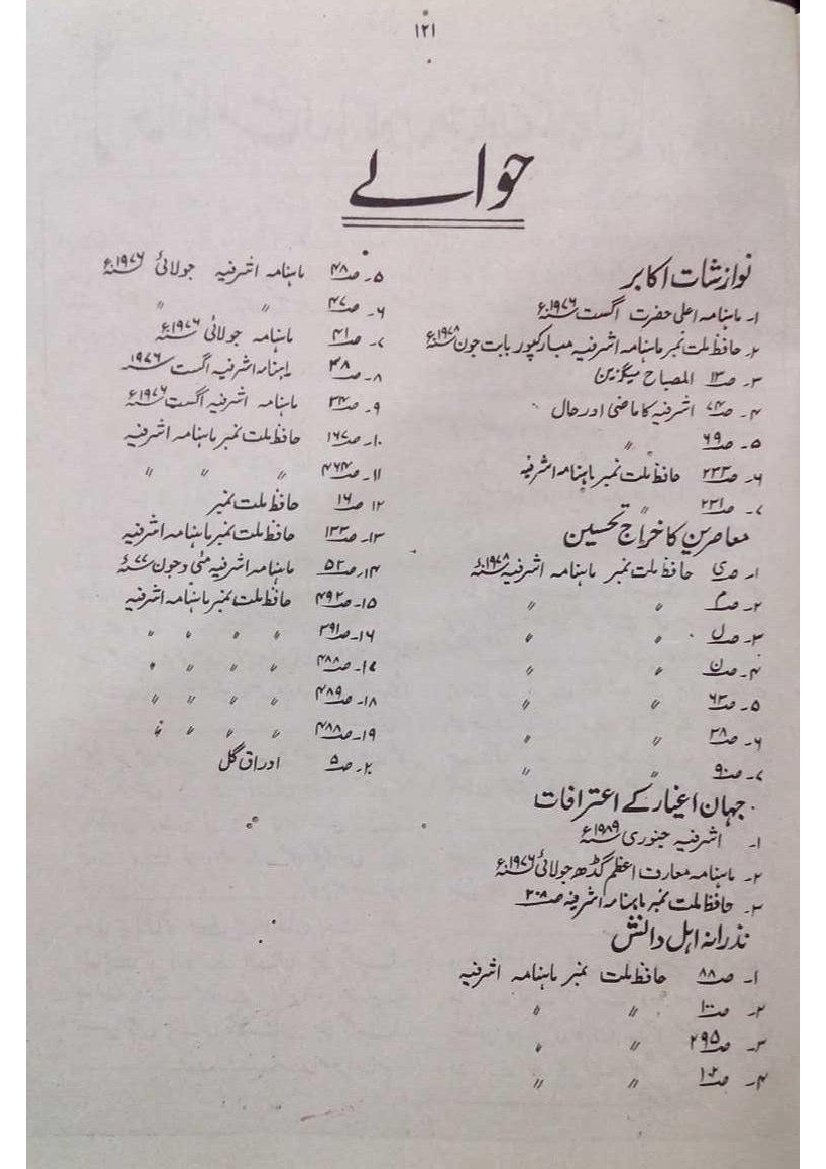 ۱۲۱
حوالے
نوازشات اکابر
۱۔ ماہنامہ اعلی حضرت اگست ۱۹۷۶ء
۲۔ حافظ ملت نمبر ماہنامہ اشرفیہ مبارکپور بابت جون ۱۹۷۸ء
۳۔ صـ۱۳ المصباح میگزین
۴۔ صـ۷۴ اشرفیہ کا ماضی اور حال
۵۔ صـ۶۹ 〃
۶۔ صـ۲۳۳ حافظ ملت نمبر ماہنامہ اشرفیہ
۷۔ صـ۲۳۱ 〃
معاصرین کا خراج تحسین
۱۔ صـی حافظ ملت نمبر ماہنامہ اشرفیہ ۱۹۷۸ء
۲۔ صـم 〃 〃
۳۔ صـل 〃 〃
۴۔ صـن 〃 〃
۵۔ صـ۶۳ 〃 〃
۶۔ صـ۳۸ 〃 〃
۷۔ صـ۹۰ 〃 〃
جہان اغیار کے اعترافات
۱۔ اشرفیہ جنوری ۱۹۸۹ء
۲۔ ماہنامہ معارف اعظم گڈھ جولائی ۱۹۷۶ء
۳۔ حافظ ملت نمبر ماہنامہ اشرفیہ صـ۲۰۸
نذرانہ اہل دانش
۱۔ صـ۸۸ حافظ ملت نمبر ماہنامہ اشرفیہ
۲۔ صـ۱۰۰ 〃 〃
۳۔ صـ۲۹۵ 〃 〃
۴۔ صـ۱۰۲ 〃 〃
۵۔ صـ۴۸ ماہنامہ اشرفیہ جولائی ۱۹۷۶ء
۶۔ صـ۴۷ 〃 〃
۷۔ صـ۴۱ ماہنامہ جولائی ۱۹۷۶ء
۸۔ صـ۳۸ ماہنامہ اشرفیہ اگست ۱۹۷۶
۹۔ صـ۳۴ ماہنامہ اشرفیہ اگست ۱۹۷۶ء
۱۰۔ صـ۱۶۷ حافظ ملت نمبر ماہنامہ اشرفیہ
۱۱۔ صـ۴۶۴ 〃 〃 〃
۱۲ صـ۱۶ حافظ ملت نمبر
۱۳۔ صـ۱۳۳ حافظ ملت نمبر ماہنامہ اشرفیہ
۱۴۔ صـ۵۲ ماہنامہ اشرفیہ مئی و جون ۷۷ء
۱۵۔ صـ۴۹۲ حافظ ملت نمبر ماہنامہ اشرفیہ
۱۶۔ صـ۳۹۱ 〃 〃 〃 〃
۱۷۔ صـ۴۸۸ 〃 〃 〃 〃
۱۸۔ صـ۴۸۹ 〃 〃 〃 〃
۱۹۔ صـ۴۸۸ 〃 〃 〃 〃
۲۰۔ صـ۵ اوراق گل